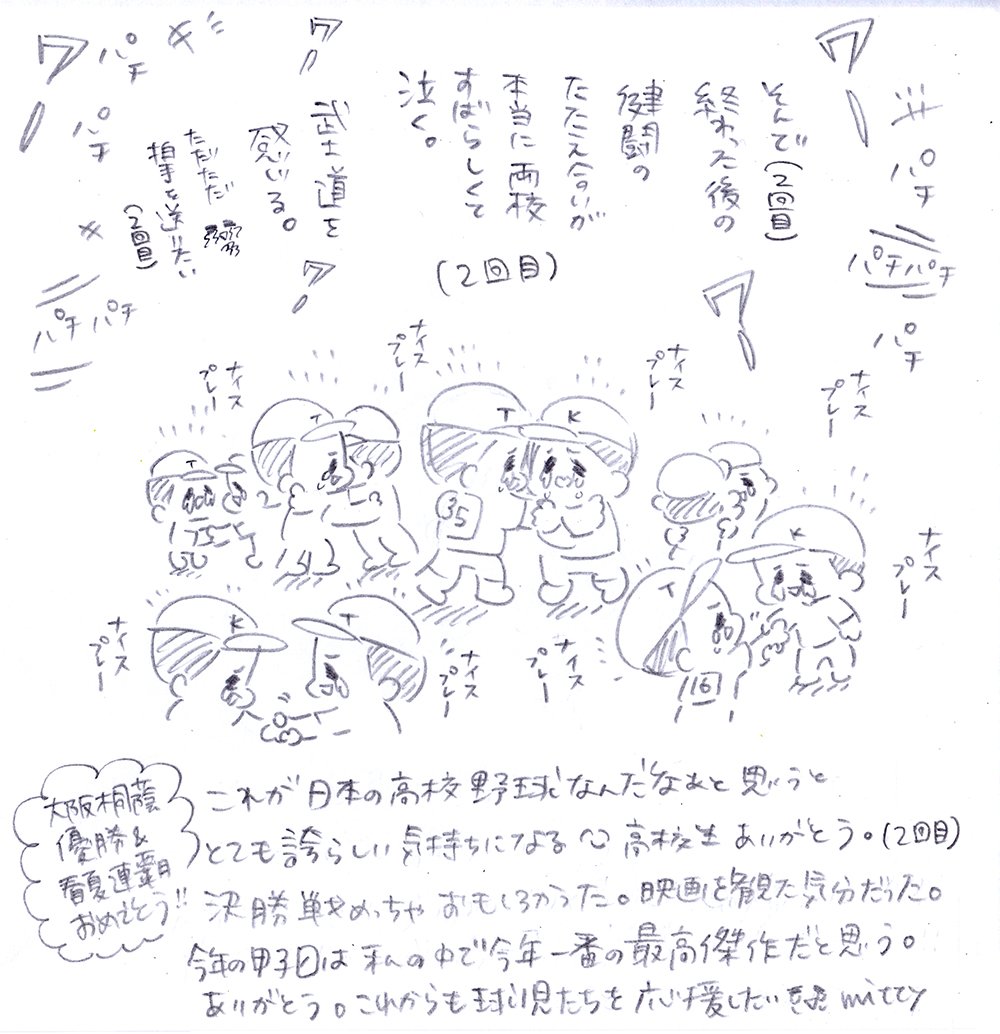 ワー
パチ
パチパチ
パチ
そんで(2回目)
終わった後の
健闘の
たたえ合いが
本当に両校
すばらしくて
泣く。
ワー
武士道を
感じいる。
ただただ
拍手を送りたい
(2回目)
ワー
パチ
パチ
パチパチ
ワー
(2回目)
ワー
ナイス
プレー
ナイス
プレー
ナイス
プレー
ナイス
プレー
T
T
T
K
35
K
ナイス
プレー
K
T
T
16
ナイス
プレー
ナイス
プレー
ナイス
プレー
大阪桐蔭
優勝&
春夏連覇
おめでとう!!
これが日本の高校野球なんだなあと思うと
とても誇らしい気持ちになる 高校生ありがとう。(2回目)
決勝戦めっちゃおもしろかった。映画を観た気分だった。
今年の甲子園は私の中で今年一番の最高傑作だと思う。
ありがとう。これからも球児たちを応援したい mitty